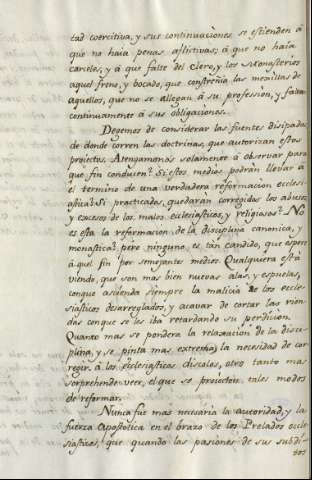 tad coercitiva, y sus continuaciones se estienden á
que no haia penas aflictivas; á que no haia
carceles, y á que falte del Clero, y los Monasterios
aquel freno, y bocado, que constreñia las mexillas de
aquellos, que no se allegan á su profession, y faltan
continuamente á sus obligaciones.
Degemos de considerar las fuentes disipadas
de donde corren las doctrinas, que autorizan estos
proiectos. Atengamonos solamente á observar para
que fin conducen? Si estos medios podrán llevar á
el termino de una verdadera reformacion eclesi-
astica? Si practicados, quedarán corregidas los abusos
y excesos de los malos eclesiasticos, y religiosos? No
es esta la reformacion de la disciplina canonica, y
monastica? pero ninguno es tan candido, que espere
á quel fin por semejantes medios. Qualquiera está
viendo, que son mas bien nuevas alas, y espuelas,
conque ascienda siempre la malicia de los ecle-
siasticos desarreglados, y acavar de cortar las rien-
das con que se les iba retardando su perdicion.
Quanto mas se pondera la relaxacion de la disci-
plina, y se pinta mas extrecha la necesidad de cor
regir á los eclesiasticos discolos, otro tanto mas
sorprehende ver, el que se proiecten tales modos
de reformar.
Nunca fue mas necesaria la autoridad, y la
fuerza Apostolica en el brazo de los Prelados ecle-
siasticos, que quando las pasiones de sus subdi-
tos